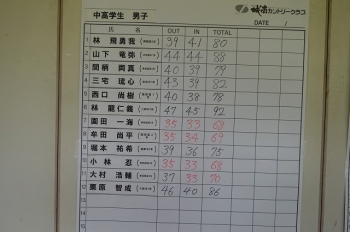 カントリークラブ
中高学生 男子
DATE /
氏 名 OUT IN TOTAL
1 林 飛勇我 39 41 80
2 山下 竜弥 44 44 88
3 間柄 両真 40 39 79
4 三宅 琉心 43 39 82
5 西口 尚樹 40 38 78
6 林 龍仁義 47 45 92
7 園田 一海 35 33 68
8 牟田 尚平 35 34 69
9 堀本 祐希 39 36 75
10 小林 忍 35 33 68
11 大村 浩輔 37 33 70
12 栗原 智成 46 40 86